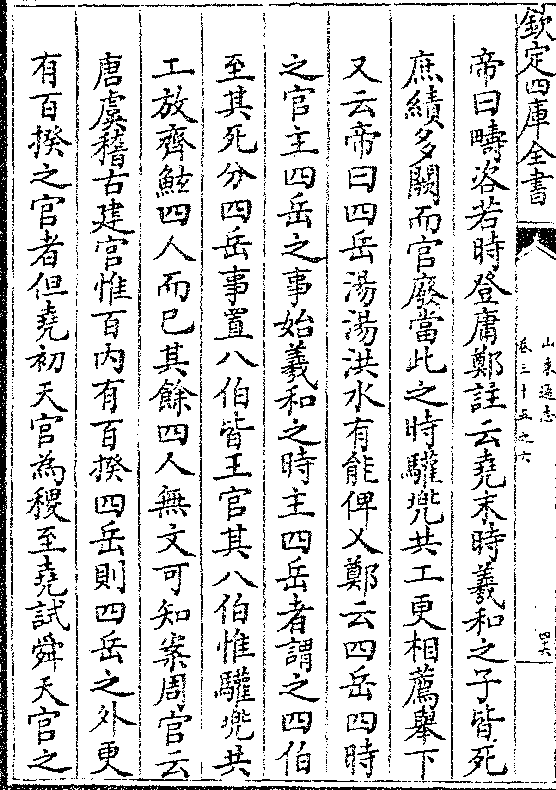 欽定四庫全書
山東通志
卷三十五之六
四六
帝曰疇咨若時登庸鄭註云堯末時羲和之子皆死
庶績多闕而官廢當此之時驩兜共工更相薦舉下
又云帝曰四岳湯湯洪水有能俾乂鄭云四岳四時
之官主四岳之事始羲和之時主四岳者謂之四伯
至其死分四岳事置八伯皆王官其八伯惟驩兠共
工放齊鯀四人而已其餘四人無文可知案周官云
唐虞稽古建官惟百內有百揆四岳則四岳之外更
有百揆之官者但堯初天官為稷至堯試舜天官之